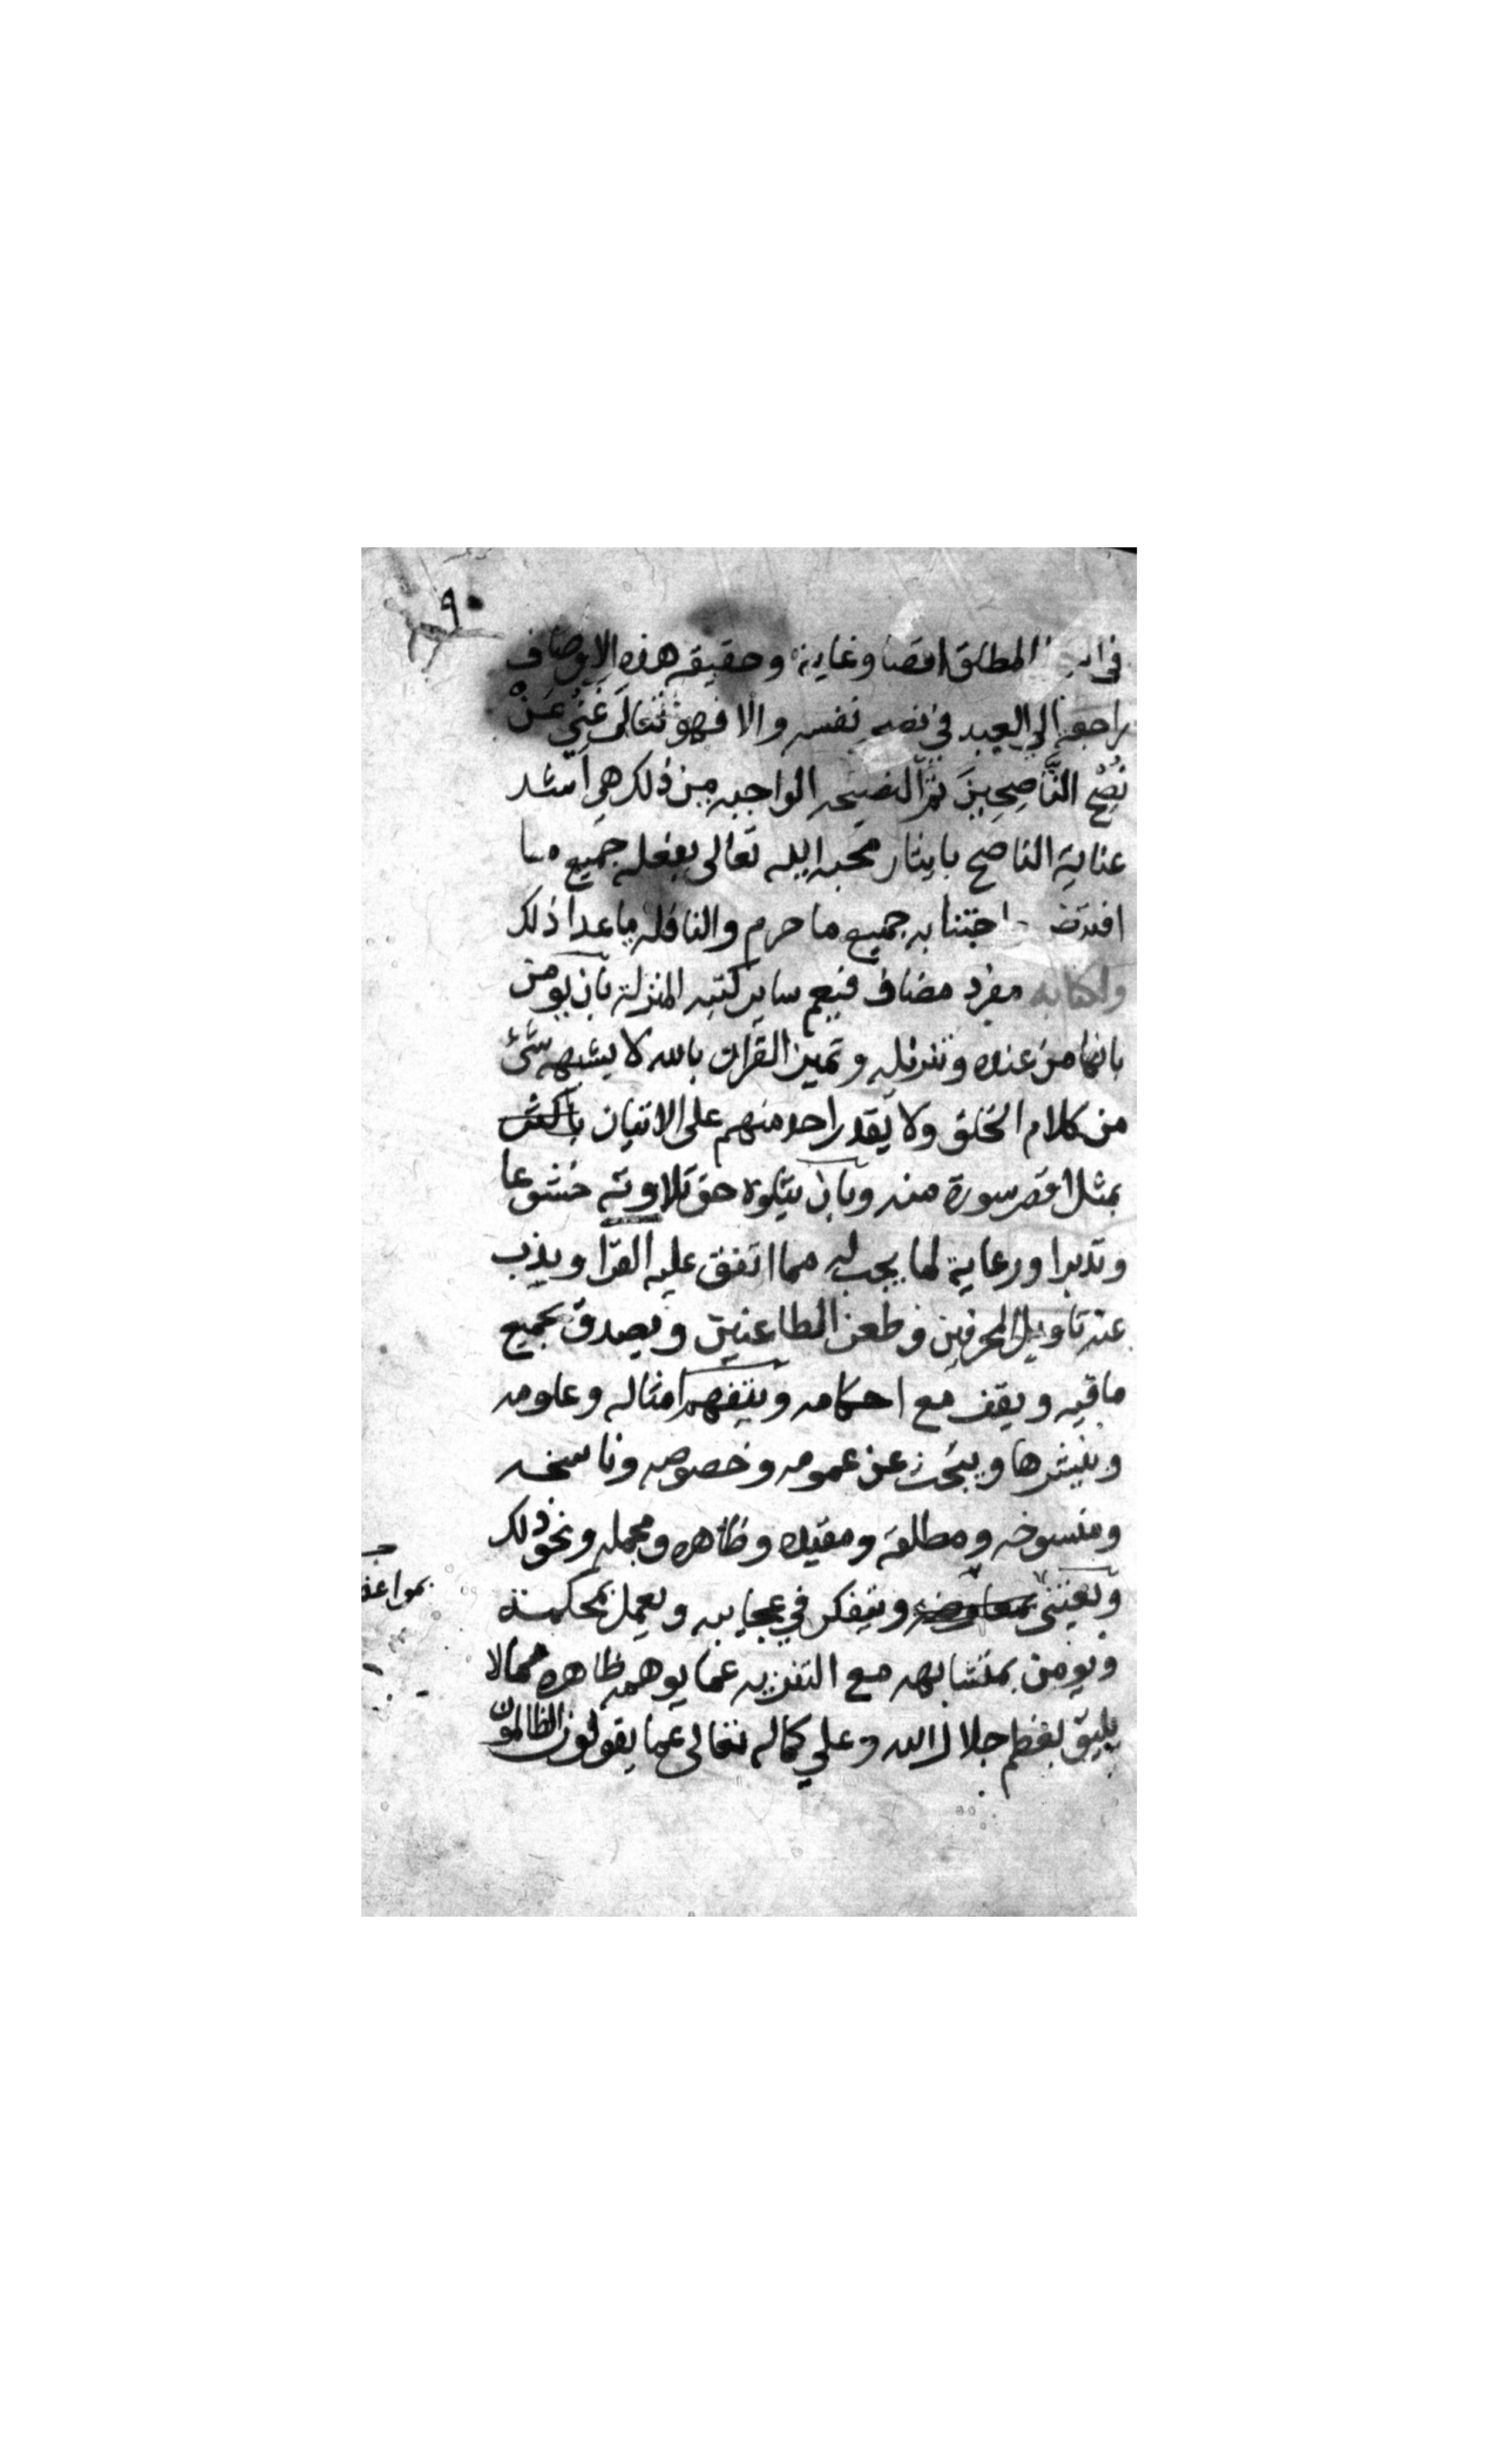 ٩٠
المطلق اقصا وغاية وحقيقه هذه الاوصاف
راجعة الي العبد في نصحه نفسه والا فهو تعالى غَنِيٌ عَنْ
نُصْحِ النَّاصِحِينَ ثمَّ النصيحه الواجبه من ذلك هي اشد
عناية الناصح بايثار محبه الله تعالى بفعله جميع ما
افترض اجتنابه جميع ما حرم والنافله ما عدا ذلك
ولكتابه مفرد مضاف فيعم ساير كتبه المنزلة بان يومن
بانها من عنده وتنزيله وتميز القران بانه لا يشبهه شئ
من كلام الخلق ولا يقدر احد منهم على الاتيان
بمثل اقصر سورة منه وبان يتلوه حق تلاوته خشوعا
وتدبرا ورعاية لما يجب له مما اتفق عليه القرا ويذب
عنه تاويل المحرفين وطعن الطاعنين ويصدق بجميع
ما فيه ويقف مع احكامه ويتفهم امثاله وعلومه
وينشرها ويبحث عن عمومه وخصوصه وناسخه
ومنسوخه ومطلقه ومقيده وظاهره ومجمله ونحو ذلك
ويعتني بمواعظه ويتفكر في عجايبه ويعمل بمحكمه
ويومن بمتشابهه مع التنزيه عما يوهمه ظاهره مما لا
يليق بعظم جلال الله وعلي كماله تعالى عما يقولون الظالمون